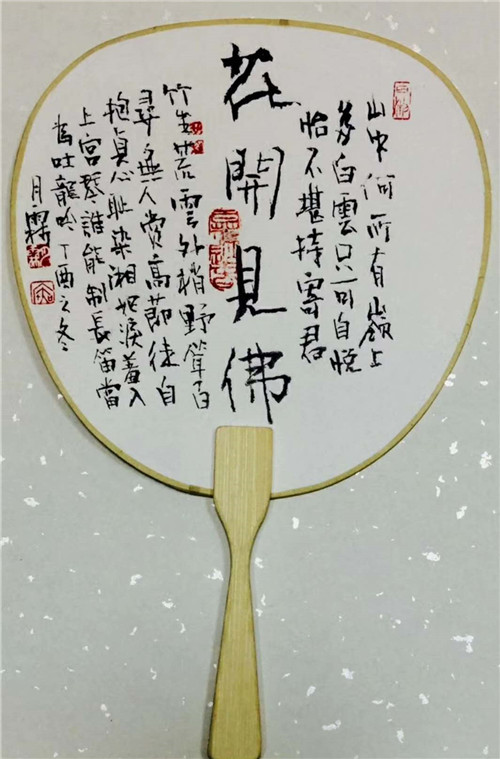 山中何所有嶺上
多白雲只可自悅
怡不堪持寄君
花開見佛
竹生荒雲外梢野聳百
尋無人賞高節徒自
抱貞心恥染湘妃淚羞入
上宮琴誰能制長笛當
為吐龍吟丁酉之冬
月霖